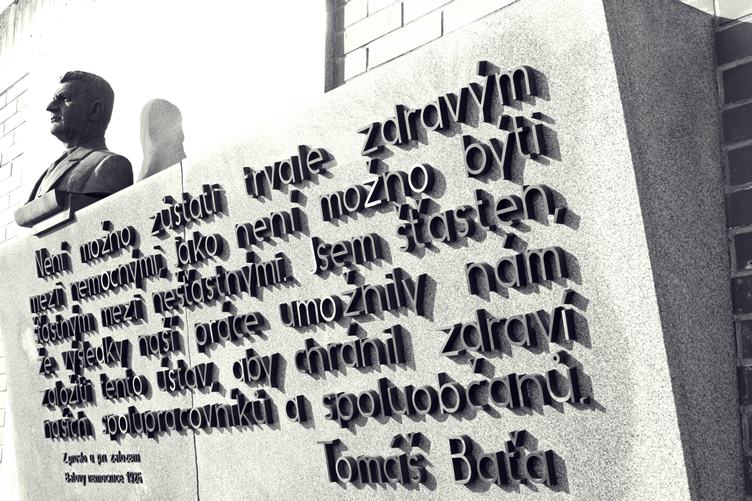 Není možno zůstati trvale zdravým
mezi nemocnými jako není možno býti
šťastným mezi nešťastnými. Jsem šťasten,
že výsledky naší práce umožnily nám
založiti tento ústav, aby chránil zdraví
našich spolupracovníků a spoluobčanů.
Tomáš Baťa
Baťovy nemocnice 1926